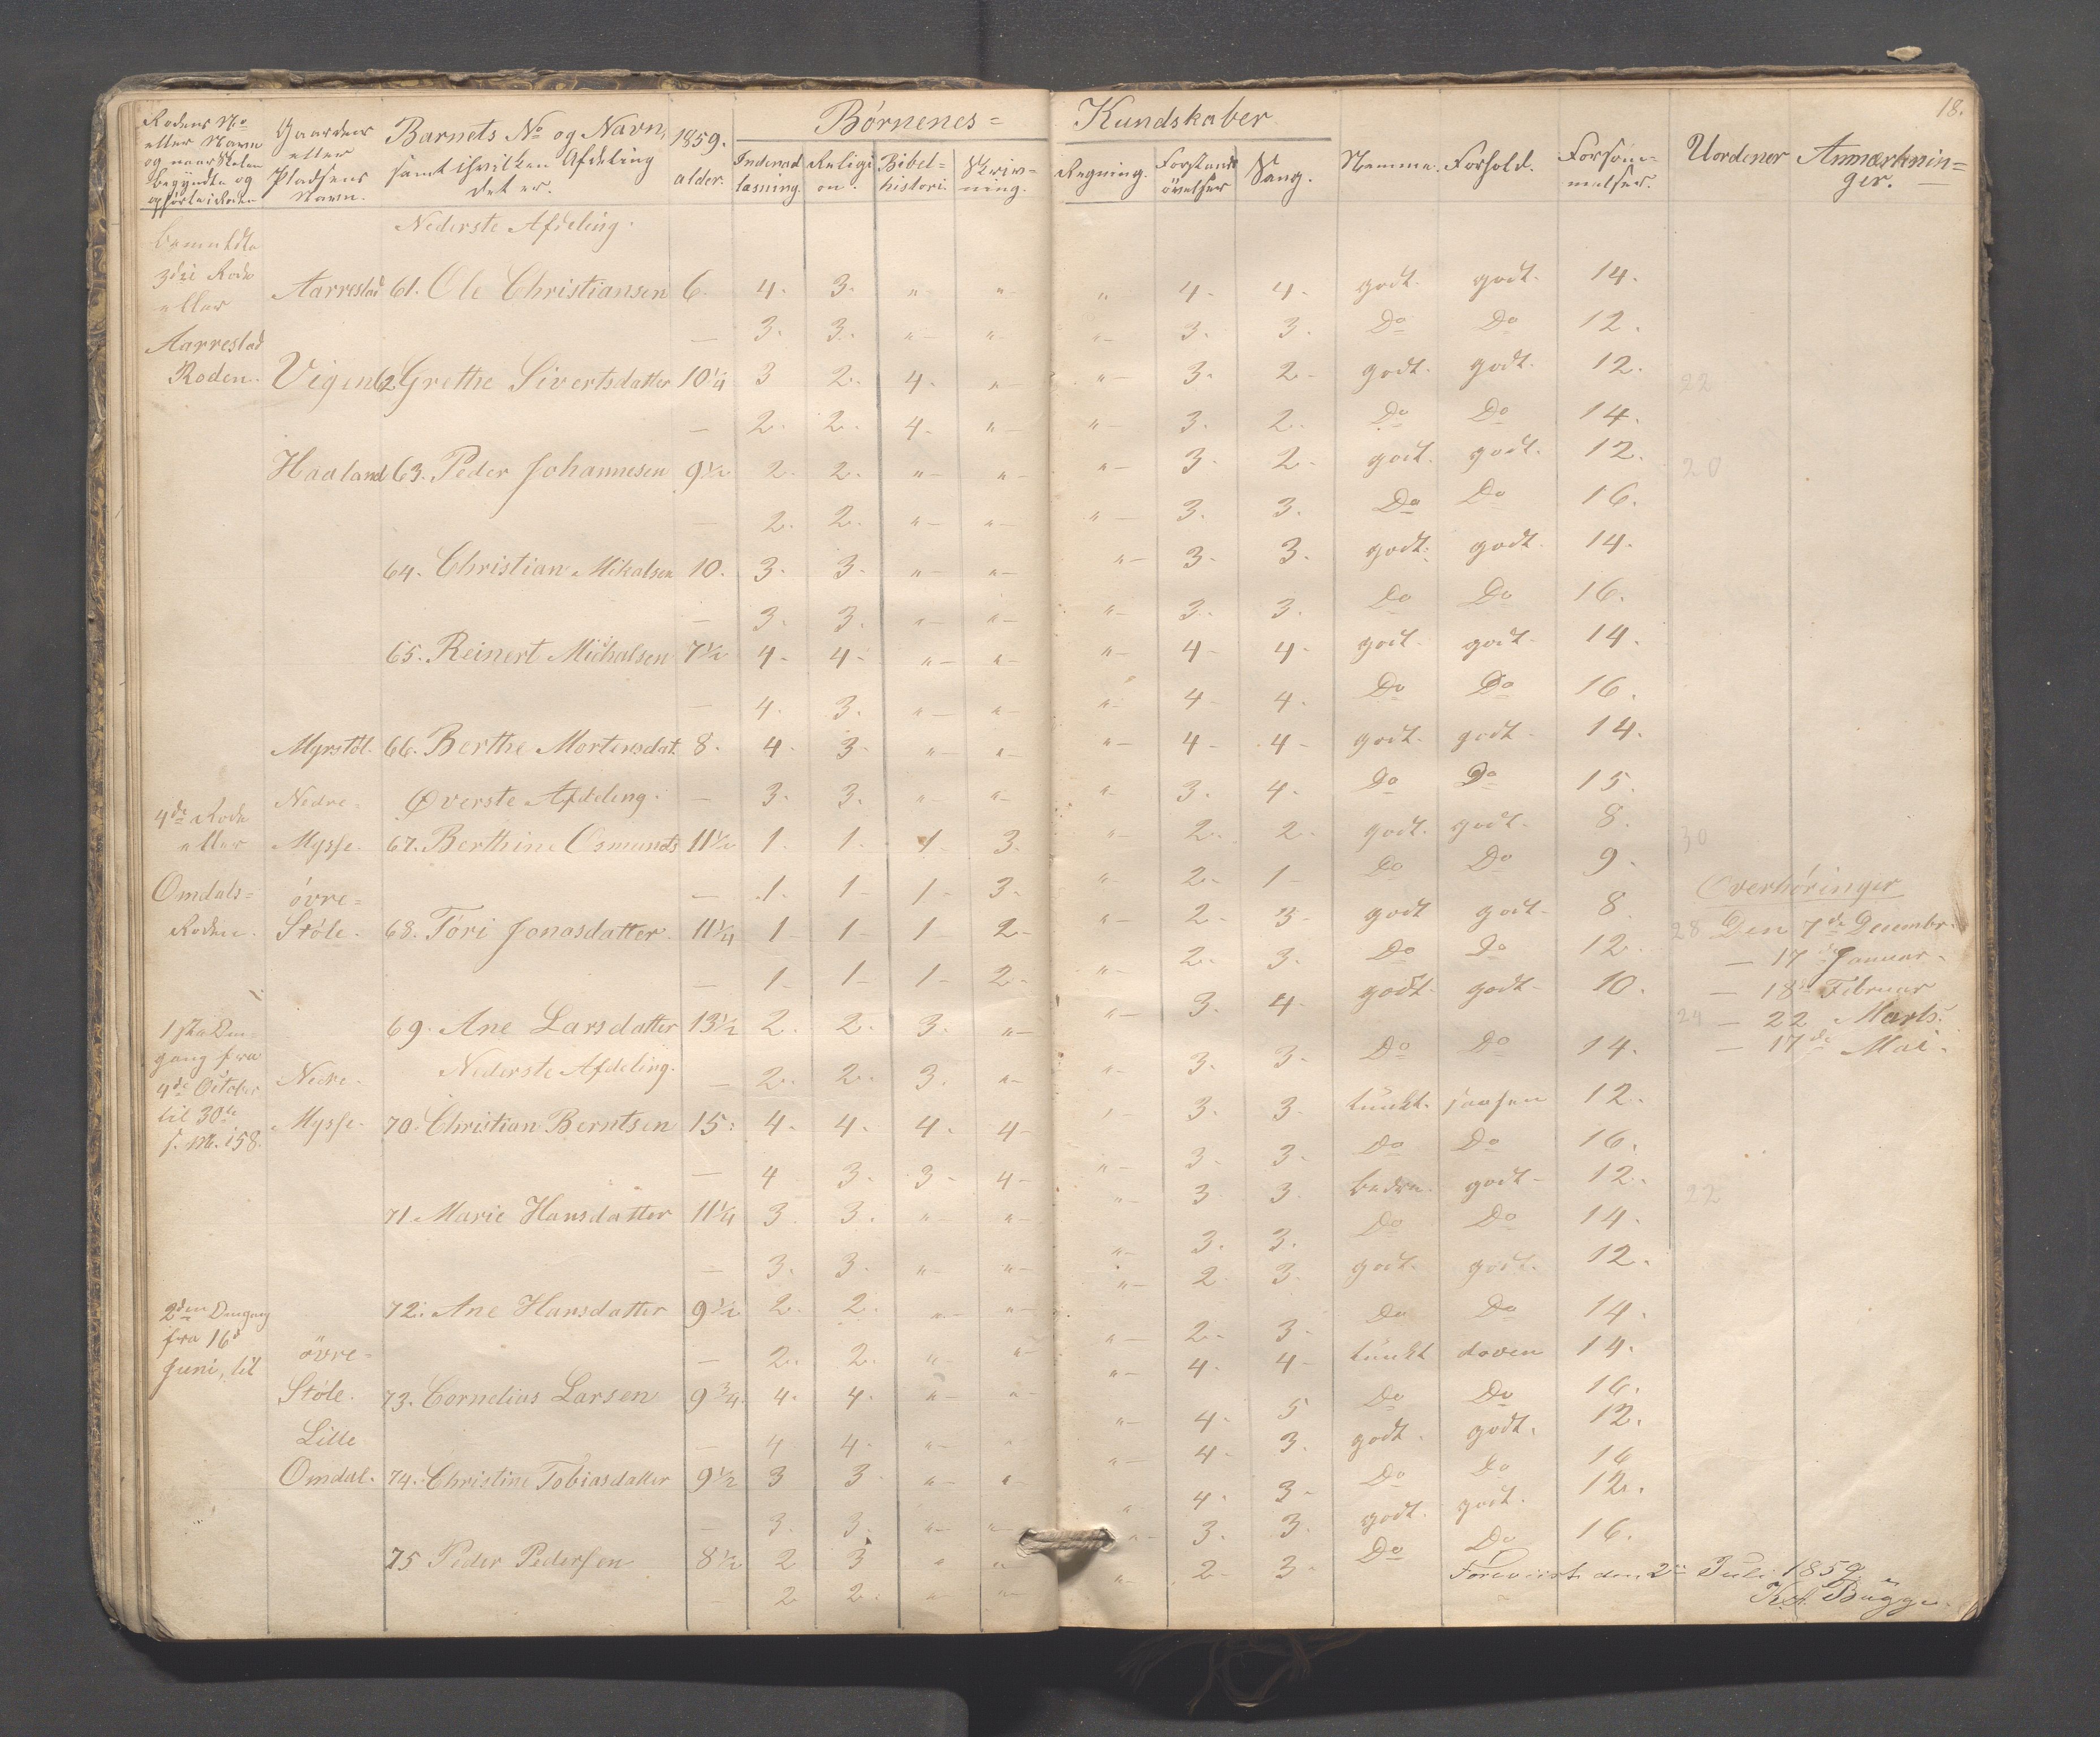 18.
Rodens No eller Navn og naar Skolen begyndte og ophørte i Roden
Gaardens eller Pladsens Navn.
Barnets No og Navn, samt ihvilken Afdeling det er.
1859. alder.
Børnenes= Kundskaber
Indenad læsning. Religion. Bibel=histori. Skriv=ning. Regning. Forstands övelser Sang. Nemme. Forhold. Forsøm=melser. Uordener Anmærknin=ger.
Nederste Afdeling.
benævnte 3die Rode eller Aarrestad Roden.
Aarrestad 61. Ole Christiansen 6. 4. 3. " " " 4. 4. godt. godt. 14.
— 3. 3. " " " 3. 3. Do Do 12.
Vigen 62. Grethe Sivertsdatter 10¼ 3 2. 4. " " 3. 2. godt. godt. 12. 22
— 2. 2. 4. " " 3. 2. Do Do 14.
Haaland 63. Peder Johannesen 9½ 2. 2. " " " 3. 2. godt. godt. 12. 20
— 2. 2. " " " 3. 3. Do Do 16.
64. Christian Mikalsen 10. 3. 3. " " " 3. 3. godt. godt. 14.
— 3. 3. " " " 3. 3. Do Do 16.
65. Reinert Michalsen 7½ 4. 4. " " " 4. 4. godt. godt. 14.
— 4. 3. " " " 4. 4. Do Do 16.
Myrstøl. 66. Berthe Mortensdat. 8. 4. 3. " " " 4. 4. godt. godt. 14.
— 3. 3. " " " 3. 4. Do Do 15.
4de Rode eller Omdals=Roden.
Øverste Afdeling.
Nedre= Mysse. 67. Berthine Osmunds 11½ 1. 1. 1. 3. " 2. 2. godt. godt. 8. 30
— 1. 1. 1. 3. " 2. 1 Do Do 9.
övre= Støle. 68. Töri Jonasdatter. 11¼ 1 1 1 2. " 2. 3. godt godt. 8. 28
— 1. 1 1. 2. " 2. 3. Do Do 12.
69. Ane Larsdatter 13½ 2. 2. 3. " " 3. 4. godt. godt. 10. 24
— 2. 2. 3. " " 3. 3. Do Do 14.
Overhøringer
Den 7de Decembr.
— 17de Januar.
— 18de Februar
— 22 Marts.
— 17de Mai.
1ste Omgang fra 4de October til 30te s. M. 158.
Nederste Afdeling.
Nedre. Mysse. 70. Christian Berntsen 15. 4. 4. 4. 4 " 3. 3 tungt. 12.
— 4 3. 3. 4 " 3. 3. Do Do 16.
71. Marie Hansdatter 11¼ 3 3. " " " 3 3. bedre. godt 12. 22
— 3. 3. " " " 3. 3. Do Do 14.
72. Ane Hansdatter 9½ 2. 2. " " " 2. 3. godt. godt. 12.
— 2. 2. " " " 2. 3. Do Do 14.
2den Omgang fra 16de Juni, til
övre= Støle. 73. Cornelius Larsen 9¾ 4. 4. " " " 4. 4 tungt doven 14.
— 4 4. " " " 4. 5 Do Do 16.
Lille Omdal. 74. Christine Tobiasdatter 9½ 3 3 " " " 4. 3. godt. godt. 12.
— 3. 3. " " " 4. 3. Do Do 16
75 Peder Pedersen 8½ 2 3 " " " 3. 3. godt. godt. 12.
— 2 2. " " " 2. 3. Do Do 16.
Foreviist den 2den Juli 1859
Bugge.